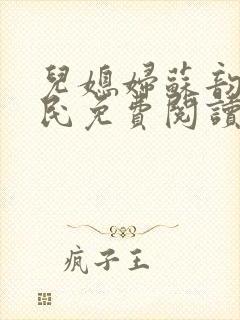 兒媳婦蘇韵
民免費閱讀
疯子王